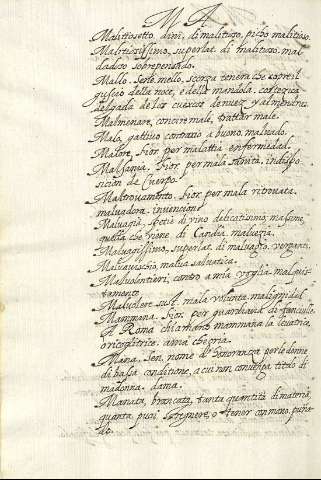 M A
Malitiosetto. dim. di malitioso, picho malitioso.
Malitiosissimo, superlat. di malitioso, mal-
dadoso sobrepensado.
Mallo. Sene. mello, scorza tenera che sopre il
guscio della noce, e della mandola. cortezica
delgada de los cuexcos de nuez, y almendres.
Malmenare, conciar male, trattar male.
Malo, gattivo contrario a buono, malvado.
Malore, Fior. per malattia enfermedad.
Malsania. Fior. per mala sanità, indispo-
sicion de Cuerpo.
Maltrovamento. Fior. per mala ritrovata.
malvadora. invencion.
Malvagia. spetie di vino delicatissimo, massime
quella che viene di Candia. malvezia.
Malvagissimo. superlat. di malvagio, vergante.
Malvavischio, malva salvatica.
Malvolentieri, contro a mia voglia. mal guis-
tamente.
Malvolere sust. mala volunta. malignidad.
Mammana. Fior. per guardiana di fanciulle.
A Roma chiamano mammana la levatrice,
o ricoglitrice. ama che pria.
Mana. Sen. nome d' honoranza per le donne
di bassa conditione, a cui non convenga titolo di
madonna. dama.
Manata, brancata, tanta quantità di materia,
quanta puoi stregnere, o tener con mano. puña-
do.